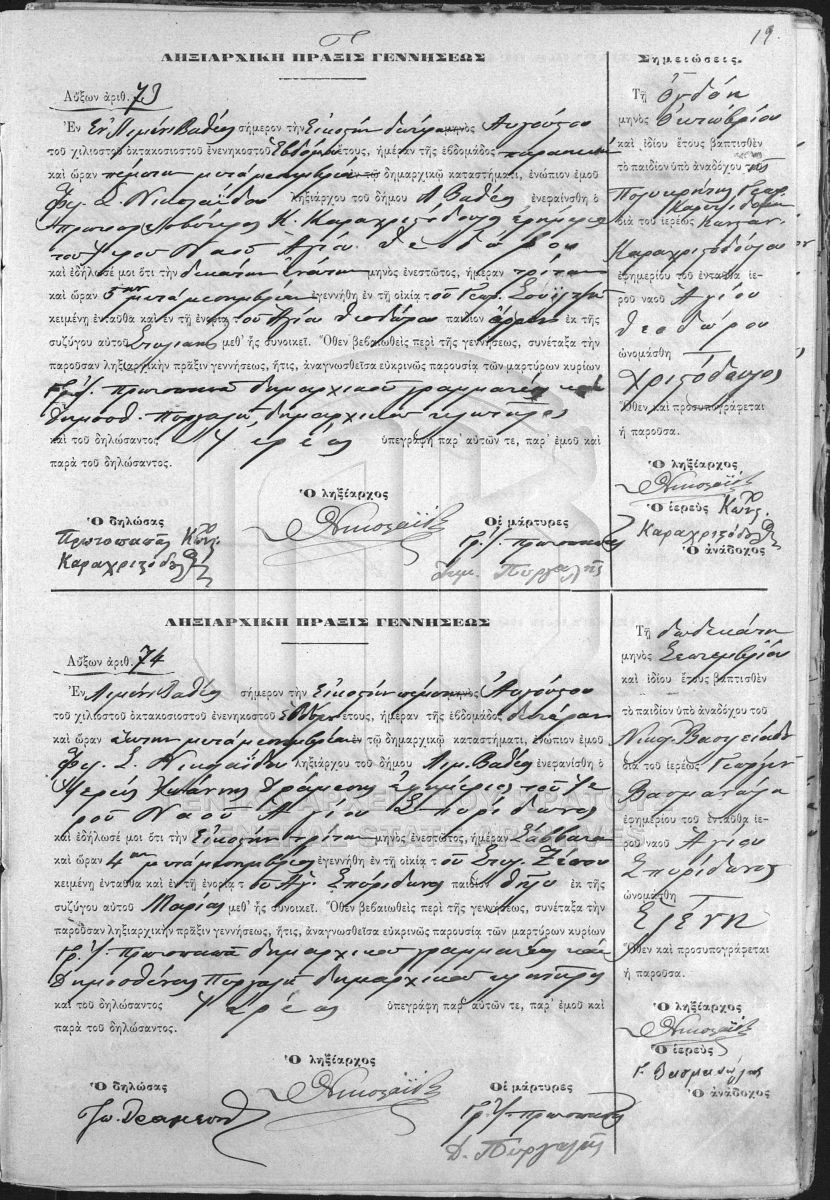 19
ΛΗΞΙΑΡΧΙΚΗ ΠΡΑΞΙΣ ΓΕΝΝΗΣΕΩΣ
Αὔξων ἀριθ. 73
Ἐν Λιμένι Βαθέος σήμερον τὴν Εἰκοστὴν δευτέραν μηνὸς Αὐγούστου
τοῦ χιλιοστοῦ ὀκτακοσιοστοῦ ἐνενηκοστοῦ Ἑβδόμου ἔτους, ἡμέραν τῆς ἑβδομάδος παρασκευὴν
καὶ ὥραν πέμπτην μετὰ μεσημβρίαν ἐν τῷ δημαρχικῷ καταστήματι, ἐνώπιον ἐμοῦ
Σ. Νικολαΐδου ληξιάρχου τοῦ δήμου Λ. Βαθέος ἐνεφανίσθη ὁ
πρωτοπρεσβύτερος Κ. Καραχριστόδουλος ἐφημέριος
τοῦ Ἱεροῦ Ναοῦ Ἁγίου Θεοδώρου
καὶ ἐδήλωσέ μοι ὅτι τὴν δεκάτην ἐνάτην μηνὸς ἐνεστῶτος, ἡμέραν τρίτην
καὶ ὥραν 5ην μετὰ μεσημβρίαν ἐγεννήθη ἐν τῇ οἰκίᾳ τοῦ Γεωρ.
κειμένῃ ἐνταῦθα καὶ ἐν τῇ ἐνορίᾳ τοῦ Ἁγίου Θεοδώρου παιδίον ἄρρεν ἐκ τῆς
συζύγου αὐτοῦ Στυλιανῆς μεθ' ἧς συνοικεῖ. Ὅθεν βεβαιωθεὶς περὶ τῆς γεννήσεως, συνέταξα τὴν
παροῦσαν ληξιαρχικὴν πρᾶξιν γεννήσεως, ἥτις, ἀναγνωσθεῖσα εὐκρινῶς παρουσίᾳ τῶν μαρτύρων κυρίων
Γρ. Ἰ. πρωτοπαπᾶ δημαρχικοῦ γραμματέως καὶ
Δημοσθ. Πυργαλῆ, δημαρχικοῦ κλητῆρος
καὶ τοῦ δηλώσαντος Ἱερέως ὑπεγράφη παρ' αὐτῶν τε, παρ' ἐμοῦ καὶ
παρὰ τοῦ δηλώσαντος.
Ὁ ληξίαρχος
Νικολαΐδης
Ὁ δηλώσας
Πρωτοπαπᾶς Κων.
Καραχριστόδουλος
Οἱ μάρτυρες
Γρ. Ἰ. πρωτοπαπᾶς
Δημ. Πυργαλῆς
Σημειώσεις.
Τῇ Ὀγδόῃ
μηνὸς Ὀκτωβρίου
καὶ ἰδίου ἔτους βαπτισθὲν
τὸ παιδίον ὑπὸ ἀναδόχου τῆς
Πολυκρίτης Γεωρ.
διὰ τοῦ ἱερέως Κωνσταν.
Καραχριστοδούλου
ἐφημερίου τοῦ ἐνταῦθα ἱε-
ροῦ ναοῦ Ἁγίου
Θεοδώρου
ὠνομάσθη
Χριστόδουλος
Ὅθεν καὶ προσυπογράφεται
ἡ παροῦσα.
Ὁ ληξίαρχος
Νικολαΐδης
Ὁ ἱερεὺς Κων.
Καραχριστόδουλος
Ὁ ἀνάδοχος
ΛΗΞΙΑΡΧΙΚΗ ΠΡΑΞΙΣ ΓΕΝΝΗΣΕΩΣ
Αὔξων ἀριθ. 74
Ἐν Λιμένι Βαθέος σήμερον τὴν Εἰκοστὴν πέμπτην μηνὸς Αὐγούστου
τοῦ χιλιοστοῦ ὀκτακοσιοστοῦ ἐνενηκοστοῦ Ἑβδόμου ἔτους, ἡμέραν τῆς ἑβδομάδος δευτέραν
καὶ ὥραν ἕκτην μετὰ μεσημβρίαν ἐν τῷ δημαρχικῷ καταστήματι, ἐνώπιον ἐμοῦ
Σ. Νικολαΐδου ληξιάρχου τοῦ δήμου Λιμ. Βαθέος ἐνεφανίσθη ὁ
Ἱερεὺς Ἰωάννης Δράμεσης ἐφημέριος τοῦ Ἱε
ροῦ Ναοῦ Ἁγίου Σπυρίδωνος
καὶ ἐδήλωσέ μοι ὅτι τὴν Εἰκοστὴν τρίτην μηνὸς ἐνεστῶτος, ἡμέραν Σάββατον
καὶ ὥραν 4ην μετὰ μεσημβρίας ἐγεννήθη ἐν τῇ οἰκίᾳ τοῦ
κειμένῃ ἐνταῦθα καὶ ἐν τῇ ἐνορίᾳ τοῦ Ἁγ. Σπυρίδωνος παιδίον θῆλυ ἐκ τῆς
συζύγου αὐτοῦ Μαρίας μεθ' ἧς συνοικεῖ. Ὅθεν βεβαιωθεὶς περὶ τῆς γεννήσεως, συνέταξα τὴν
παροῦσαν ληξιαρχικὴν πρᾶξιν γεννήσεως, ἥτις, ἀναγνωσθεῖσα εὐκρινῶς παρουσίᾳ τῶν μαρτύρων κυρίων
Γρ. Ἰ. πρωτοπαπᾶ δημαρχικοῦ γραμματέως καὶ
Δημοσθένους Πυργαλῆ δημαρχικοῦ κλητῆρος
καὶ τοῦ δηλώσαντος Ἱερέως ὑπεγράφη παρ' αὐτῶν τε, παρ' ἐμοῦ καὶ
παρὰ τοῦ δηλώσαντος.
Ὁ ληξίαρχος
Νικολαΐδης
Ὁ δηλώσας
Οἱ μάρτυρες
Γρ. Ἰ. πρωτοπαπᾶς
Δ. Πυργαλῆς
Τῇ δωδεκάτῃ
μηνὸς Σεπτεμβρίου
καὶ ἰδίου ἔτους βαπτισθὲν
τὸ παιδίον ὑπὸ ἀναδόχου τοῦ
Νικολ. Βασιλειάδη
διὰ τοῦ ἱερέως Γεωργίου
ἐφημερίου τοῦ ἐνταῦθα ἱε-
ροῦ ναοῦ Ἁγίου
Σπυρίδωνος
ὠνομάσθη
Ἑλένη
Ὅθεν καὶ προσυπογράφεται
ἡ παροῦσα.
Ὁ ληξίαρχος
Νικολαΐδης
Ὁ ἱερεὺς
Ὁ ἀνάδοχος